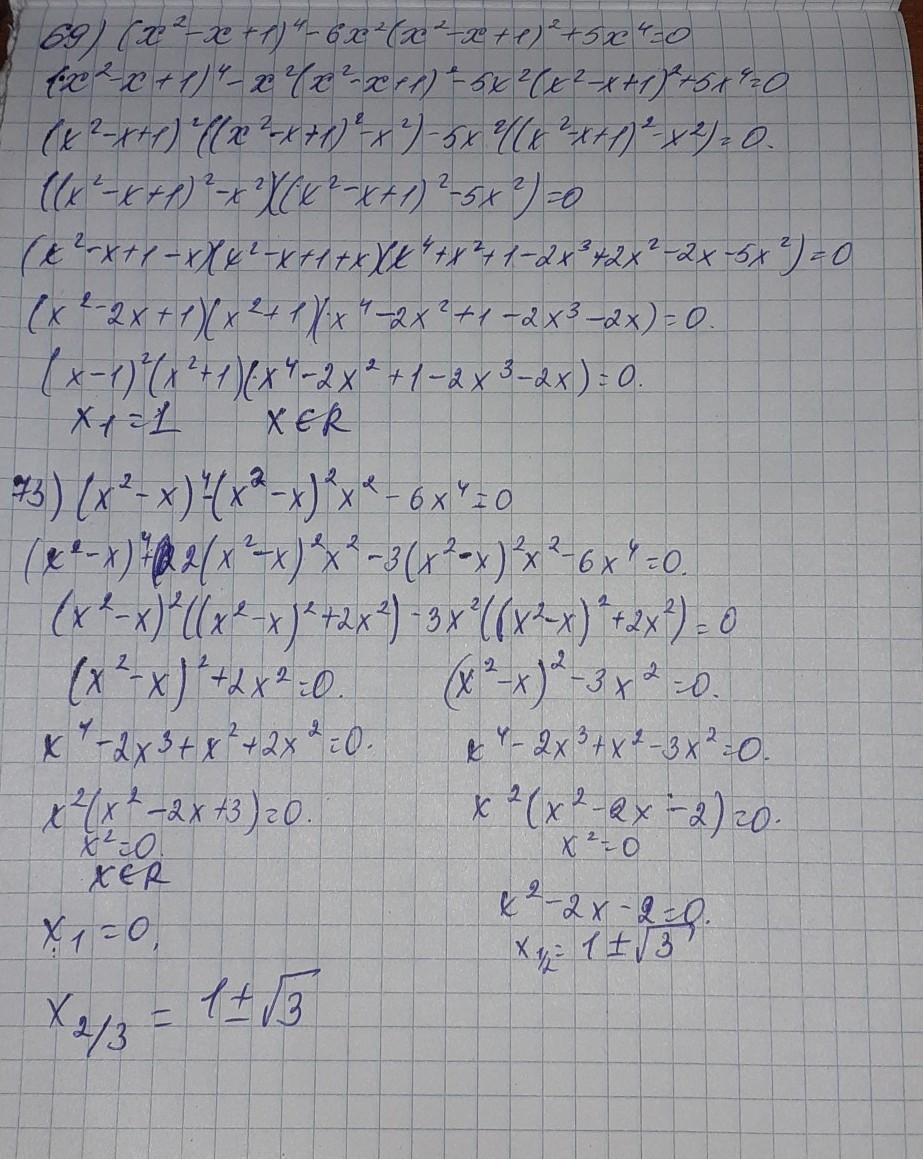 69) (x²-x+1)⁴-6x²(x²-x+1)²+5x⁴=0
(x²-x+1)⁴-x²(x²-x+1)²-5x²(x²-x+1)²+5x⁴=0
(x²-x+1)²((x²-x+1)²-x²)-5x²((x²-x+1)²-x²)=0.
((x²-x+1)²-x²)((x²-x+1)²-5x²)=0
(x²-x+1-x)(x²-x+1+x)(x⁴+x²+1-2x³+2x²-2x-5x²)=0
(x²-2x+1)(x²+1)(x⁴-2x²+1-2x³-2x)=0.
(x-1)²(x²+1)(x⁴-2x²+1-2x³-2x)=0.
x₁=1 x∈R
73) (x²-x)⁴-(x²-x)²x²-6x⁴=0
(x²-x)⁴+2(x²-x)²x²-3(x²-x)²x²-6x⁴=0.
(x²-x)²((x²-x)²+2x²)-3x²((x²-x)²+2x²)=0
(x²-x)²+2x²=0. (x²-x)²-3x²=0.
x⁴-2x³+x²+2x²=0. x⁴-2x³+x²-3x²=0.
x²(x²-2x+3)=0. x²(x²-2x-2)=0.
x²=0. x²=0
x∈R
x²-2x-2=0.
x₁=0, x₁/₂=1±√3
x₂/₃=1±√3